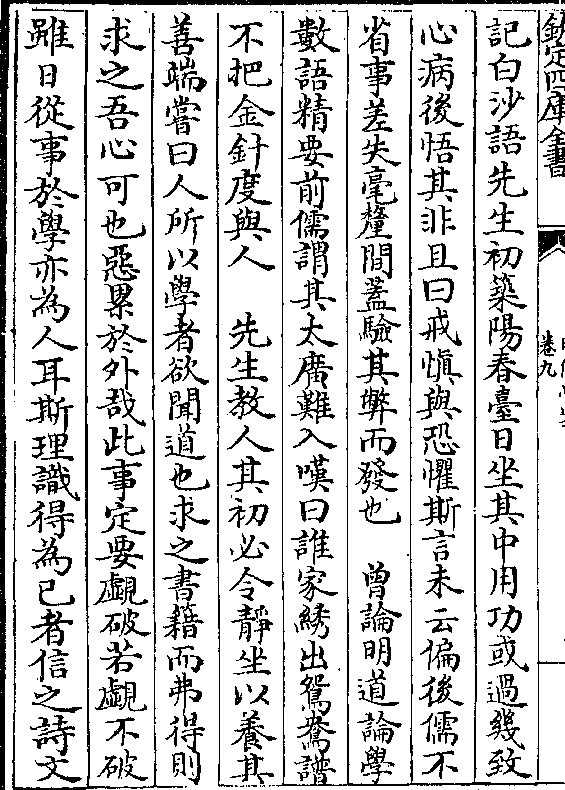 欽定四庫全書
卷九
記白沙語先生初築陽春臺日坐其中用功或過幾致
心病後悟其非且曰戒慎與恐懼斯言未云偏後儒不
省事差失毫釐間蓋驗其弊而發也　曾論明道論學
數語精要前儒謂其太廣難入嘆曰誰家綉出鴛鴦譜
不把金針度與人　先生教人其初必令靜坐以養其
善端嘗曰人所以學者欲聞道也求之書籍而弗得則
求之吾心可也惡累於外哉此事定要覷破若覷不破
雖日從事於學亦為人耳斯理識得為己者信之詩文